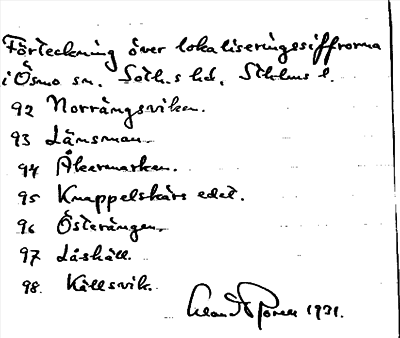 Förteckning över lokaliseringssiffrorna
i Ösmo sn. Soth.s hd. Sthlms l.
92 Norrängsviken.
93 Länsman
94 Åkermarken.
95 Knappelskärs edet.
96 Österängen
97 Låshäll.
98. Källsvik.
1931.